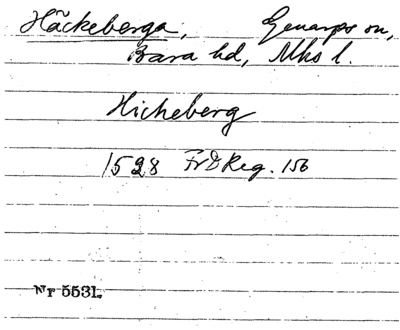 Häckeberga, Genarps sn,
Bara hd, Mhs l.
Hicheberg
1528 Fr I Reg. 156
Nr 5531.